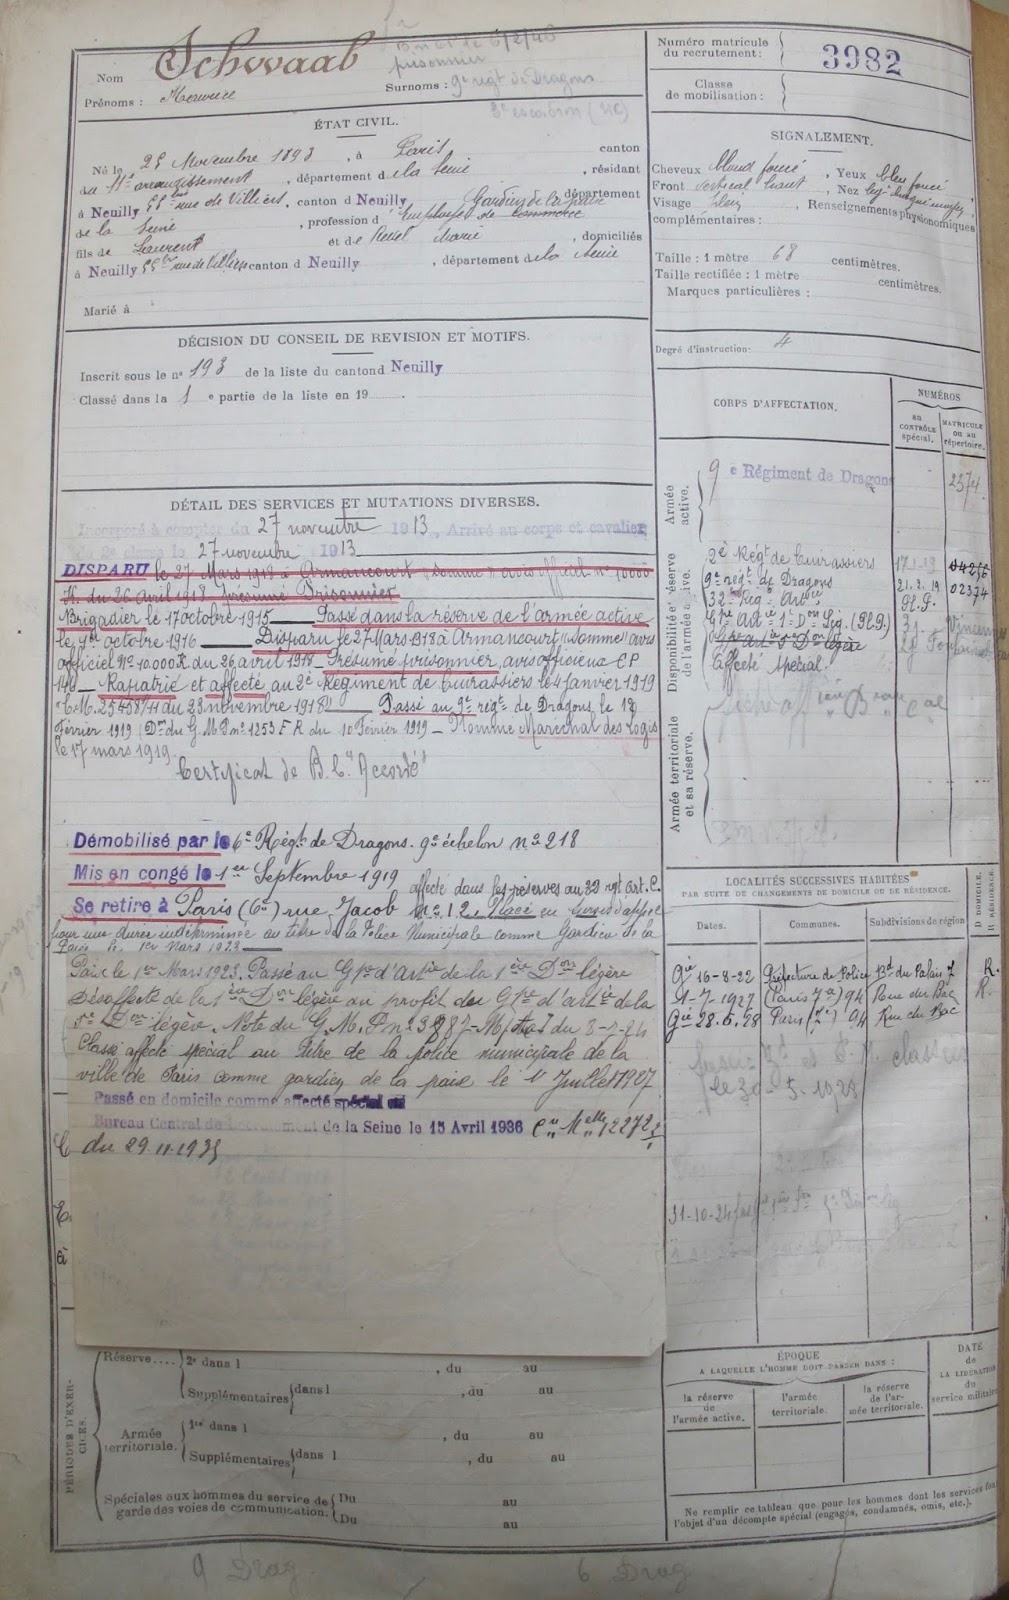 Nom Schwaab
Prénoms : Maurice
Surnoms :
prisonnier
9e régt de Dragons
ÉTAT CIVIL.
Né le 25 Novembre 1893, à Paris canton
du 11e arrondissement, département d e la Seine, résidant
à Neuilly 55 bis rue de Villiers, canton d Neuilly, département
Gardien de la paix
de la Seine, profession d'Employé de commerce
fils de Laurent et de Marie, domiciliés
à Neuilly 55 bis rue de Villiers canton d Neuilly, département de la Seine
Marié à
DÉCISION DU CONSEIL DE REVISION ET MOTIFS.
Inscrit sous le no 193 de la liste du canton d Neuilly
Classé dans la 1 e partie de la liste en 19
DÉTAIL DES SERVICES ET MUTATIONS DIVERSES.
Incorporé à compter du 27 novembre 1913, Arrivé au corps et cavalier
de 2e classe le 27 novembre 1913
DISPARU le 27 Mars 1918 à Armancourt (Somme) avis officiel no 10000
K. du 26 avril 1918 présumé Prisonnier
Brigadier le 17 octobre 1915 Passé dans la réserve de l'armée active
le 1er octobre 1916 Disparu le 27 Mars 1918 à Armancourt (Somme) avis
officiel No 10.000 K du 26 avril 1918 _ Présumé prisonnier, avis officieux CP
_ Rapatrié et affecté au 2e Régiment de Cuirassiers le 4 janvier 1919
du 23 novembre 1918 Passé au 9e régt de Dragons, le 18
Février 1919 (Don du G.M.P no 1253 F R du 10 Février 1919) _ Nommé Maréchal des logis
le 17 mars 1919
Certificat de B.C. "Accordé"
Démobilisé par le 6e Régt de Dragons. 9e échelon no 218
Mis en congé le 1er Septembre 1919 affecté dans les réserves au 32 rgt Art. C.
Se retire à Paris (6e) rue Jacob No 12 Placé en sursis d'appel
pour une durée indéterminée au titre de la Police Municipale comme Gardien de la
Paix le 1er Mars 1923
Paix le 1er Mars 1923. Passé au Gpe d'Artie de la 1ère Don légère
Désaffecté de la 1ère Don légère au profit du Gpe d'artie de la
5e Don légère. Note du G.M.P no
Classé affecté spécial au titre de la police municipale de la
ville de Paris comme gardien de la paix le 1r Juillet 1927
Passé en domicile comme affecté spécial au
Bureau Central de Recrutement de la Seine le 15 Avril 1936
du 29.11.1935
Numéro matricule
du recrutement : 3982
Classe
de mobilisation :
SIGNALEMENT.
Cheveux blond foncé, Yeux bleu foncé
Front vertical haut, Nez
Visage plein, Renseignements physionomiques
complémentaires :
Taille : 1 mètre 68 centimètres.
Taille rectifiée : 1 mètre centimètres.
Marques particulières :
Degré d'instruction : 4
CORPS D'AFFECTATION.
NUMÉROS
au
CONTRÔLE
spécial.
MATRICULE
ou au
répertoire.
Armée
active.
9 e Régiment de Dragons 2374
Disponibilité et réserve
de l'armée active.
2e Régt de Cuirassiers
9e régt de Dragons 21.2.19 02374
32e Rég. Artie
Gpe Art. 1e Don Lég. Vincennes
Gpe art 5e Don légère
Affecté spécial
Armée territoriale
et sa réserve.
LOCALITÉS SUCCESSIVES HABITÉES
PAR SUITE DE CHANGEMENTS DE DOMICILE OU DE RÉSIDENCE.
D DOMICILE.
R RÉSIDENCE.
Dates. Communes. Subdivisions de région
Gie 16-8-22 Préfecture de Police Bd du Palais 7 R.
1-7-1927 (Paris 7e) 94 Rue du Bac R.
Gie 28.6.28 Paris (7e) 94 Rue du Bac
PÉRIODES D'EXERCICES.
Réserve.... 2e dans l , du au
Supplémentaires dans l , du au
Armée
territoriale.
1re dans l , du au
Supplémentaires dans l , du au
Spéciales aux hommes du service de
garde des voies de communication.
Du au
Du au
ÉPOQUE
A LAQUELLE L'HOMME DOIT PASSER DANS :
la réserve
de
l'armée active.
l'armée
territoriale.
la réserve
de l'ar-
mée territoriale.
DATE
de
LA LIBÉRATION
du
service militaire
Ne remplir ce tableau que pour les hommes dont les services font
l'objet d'un décompte spécial (engagés, condamnés, omis, etc.).
9 Drag
6 Drag